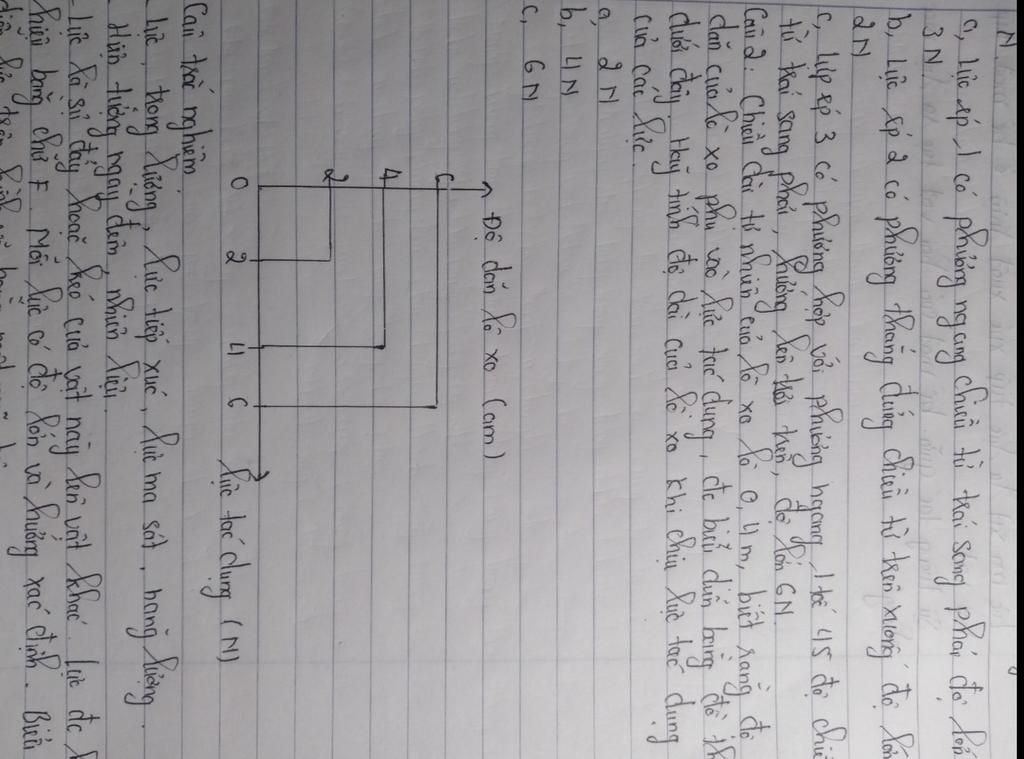 N
a, lực sp, 1 có phương ngang chiều từ trái sang phải độ lớn
3N.
b, lực sp 2 có phương thẳng đứng chiều từ trên xuống độ lớn
2N
c, lực sp 3 có phương hợp với phương ngang 1 tế 45 độ chiề
từ trái sang phải, hướng lên trên, độ lớn 6N.
Câu 2. Chiều dài tự nhiên của lò xo là 0,4m, biết rằng độ
dãn của lò xo phụ vào lực tác dụng, đc biểu diễn bằng đồ th
dưới đây. Hãy tính độ dài của lò xo khi chịu lực tác dụng
của các lực.
a, 2N
b, 4N
c, 6N
Độ dãn lò xo (cm)
6
4
2
0 2 4 6
lực tác dụng (N)
Câu trắc nghiệm
- lực, trọng lượng, lực tiếp xúc, lực ma sát, năng lượng.
Hiện tượng ngày đêm, nhiên liệu.
- lực là sự đẩy hoặc kéo của vật này lên vật khác. lực đc
hiệu bằng chữ F. Mỗi lực có độ lớn và hướng xác định. Biểu